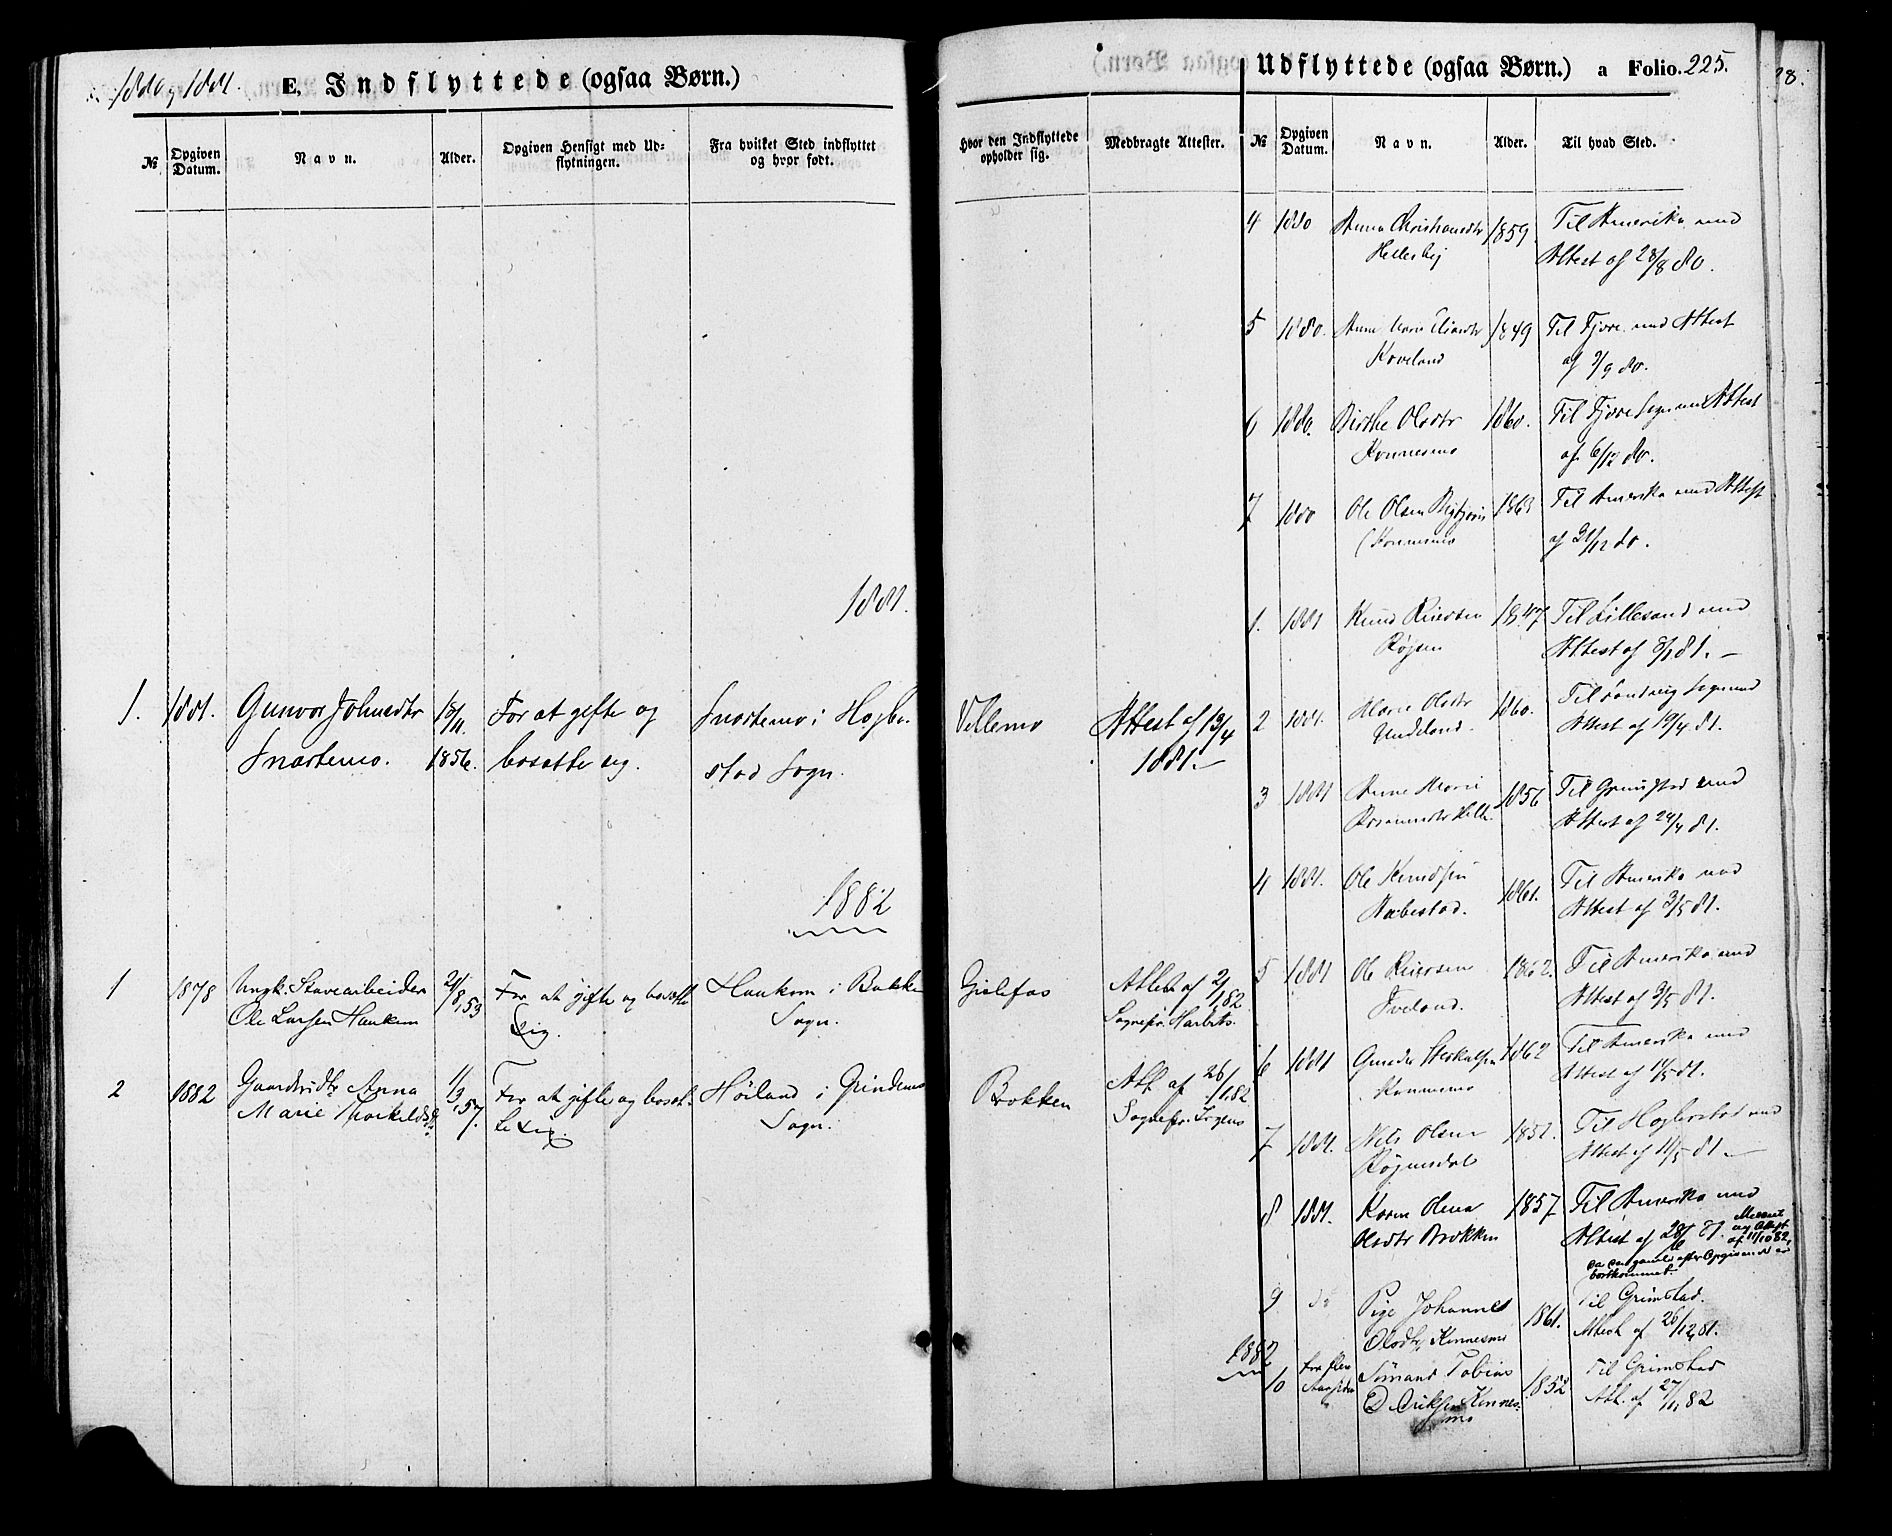 1880 og 1881.
E. Indflyttede (ogsaa Børn.)
№
Opgiven Datum.
Navn.
Alder.
Opgiven Hensigt med Udflytningen.
Fra hvilket Sted indflyttet og hvor født.
1881.
1. 1881. Gunvor Johnsdtr 18/11 For at gifte og Snartemo i Hægbo-
Snartemo. 1856. bosætte sig. stad Sogn.
1882
1 1878 Ungk. Stavearbeider 21/8,53 For at gifte og bosætte Haukom i Bakke
Ole Larsen Haukom sig. Sogn.
2 1882 Gaardbrdtr Anna 1/3 57. For at gifte og bosæt- Høiland i Grindems
Marie Thorkildsdtr te sig. Sogn.
Hvor den Indflyttede opholder sig.
Medbragte Attester.
Vellemo Attest af 13/4
1881.
Gislefos Attest af 2/1 82
Sognepr. Harbits.
Brokken Att. af 26/1 82
Sognepr.
Udflyttede (ogsaa Børn.) a Folio. 225.
28.
№
Opgiven Datum.
Navn.
Alder.
Til hvad Sted.
4 1880 Anna Christiansdtr 1859. Til Amerika med
Attest af 28/8 80.
5 1880. Anne Marie 1849 Til Fjære med Attest
Kaveland af 7/9 80.
6 1880. Birthe Olsdtr 1860. Til Fjære Sogn med Attest
Konnesmo af 6/12 80.
7 1880 Ole Olsen 1863 Til Amerika med Attest
Konnesmo af 31/12 80.
1. 1881 Knud Reiersen 1847 Til Lillesand med
Attest af 8/1 81.
2 1881. Marie Olsdtr 1860. Til Landvig Sogn med
Undeland Attest af 19/4 81.
3 1881 Anne Marie 1856 Til Grimstad med
Attest af 24/4 81.
4 1881. Ole Knudsen 1861. Til Amerika med
Hæbestad. Attest af 3/5 81.
5 1881 Ole Reiersen 1862. Til Amerika med
Iveland. Attest af 9/5 81.
6 1881 Gunder 1862 Til Amerika med
Konnesmo Attest af 11/5 81.
7 1881. Nils Olsen 1851. Til Hægbostad med
Attest af 11/5 81.
8 1881. Karen Olene 1857 Til Amerika med
Olsdtr Brokken Attest af 28/ 81. Meddelt ny Attest af 11/10 82,
da den gamle efter Opgivende er
bortkommet.
9. do Pige Johanne 1861. Til Grimstad.
Olsdtr, Konnesmo Attest af 28/12,81.
1882
10 For flere Aar siden Sømand Tobias 1852 Til Grimstad
Eriksen Konnes- Att. af 27/11,82
mo